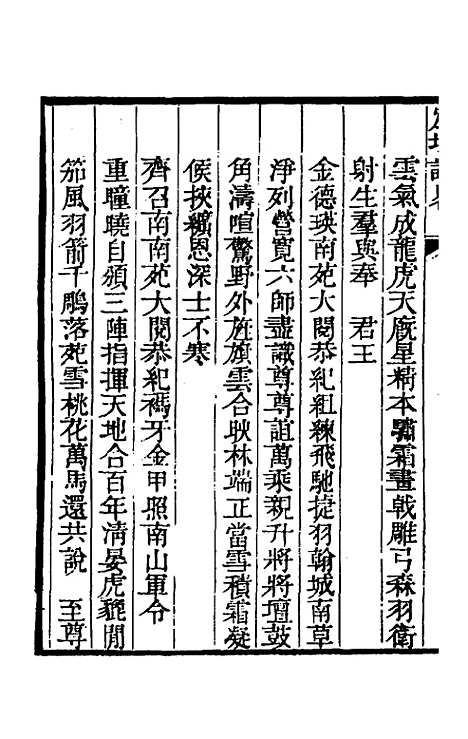 雲氣成龍虎天廐星精本驌霜畫戟雕弓森羽衛
射生羣與奉　君王
金德瑛南苑大閱恭紀組練飛馳捷羽翰城南草
淨列營寬六師盡識尊尊誼萬乘親升將將壇鼓
角濤喧驚野外旌旗雲合映林端正當雪積霜凝
候挾纊恩深士不寒
齊召南南苑大閱恭紀禡牙金甲照南山軍令
重瞳曉自頒三陣指揮天地合百年清晏虎貔閒
笳風羽箭千鵰落苑雪桃花萬馬還共說　至尊